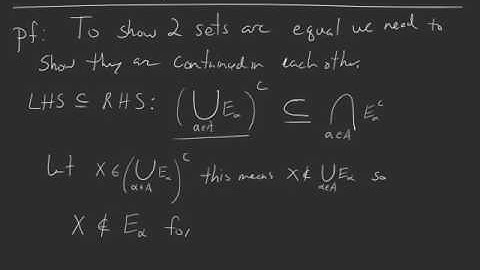 pf: To show 2 sets are equal we need to
show they are contained in each other.
LHS ⊆ RHS: (⋃_{α∈A} E_α)^c ⊆ ⋂_{α∈A} E_α^c
Let x ∈ (⋃_{α∈A} E_α)^c this means x ∉ ⋃_{α∈A} E_α so
x ∉ E_α for